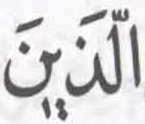 الّذَينَ